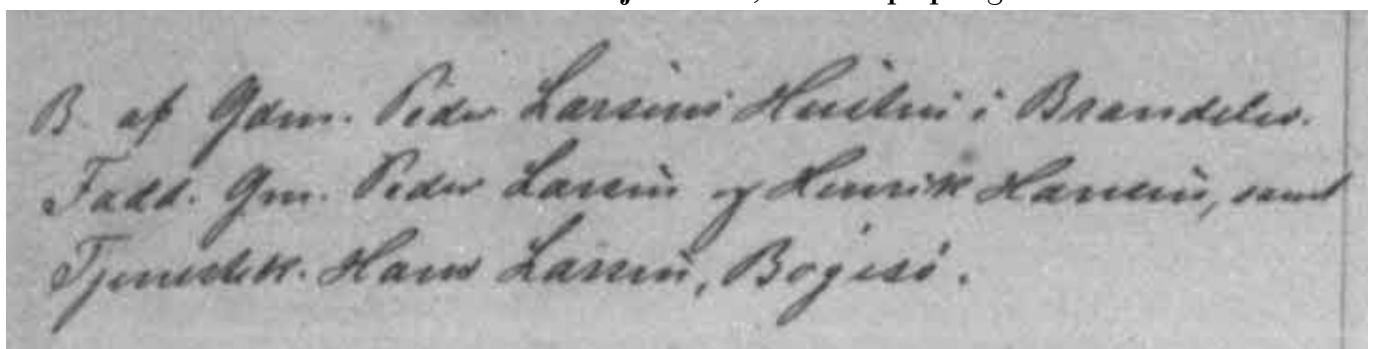 B. af Gdm. Peder Larsens Hustru i Brandelev.
Fadd. Gm. Peder Larsen og Henrik Hansen, samt
Tjenestek. Hans Larsen, Bøgesø.